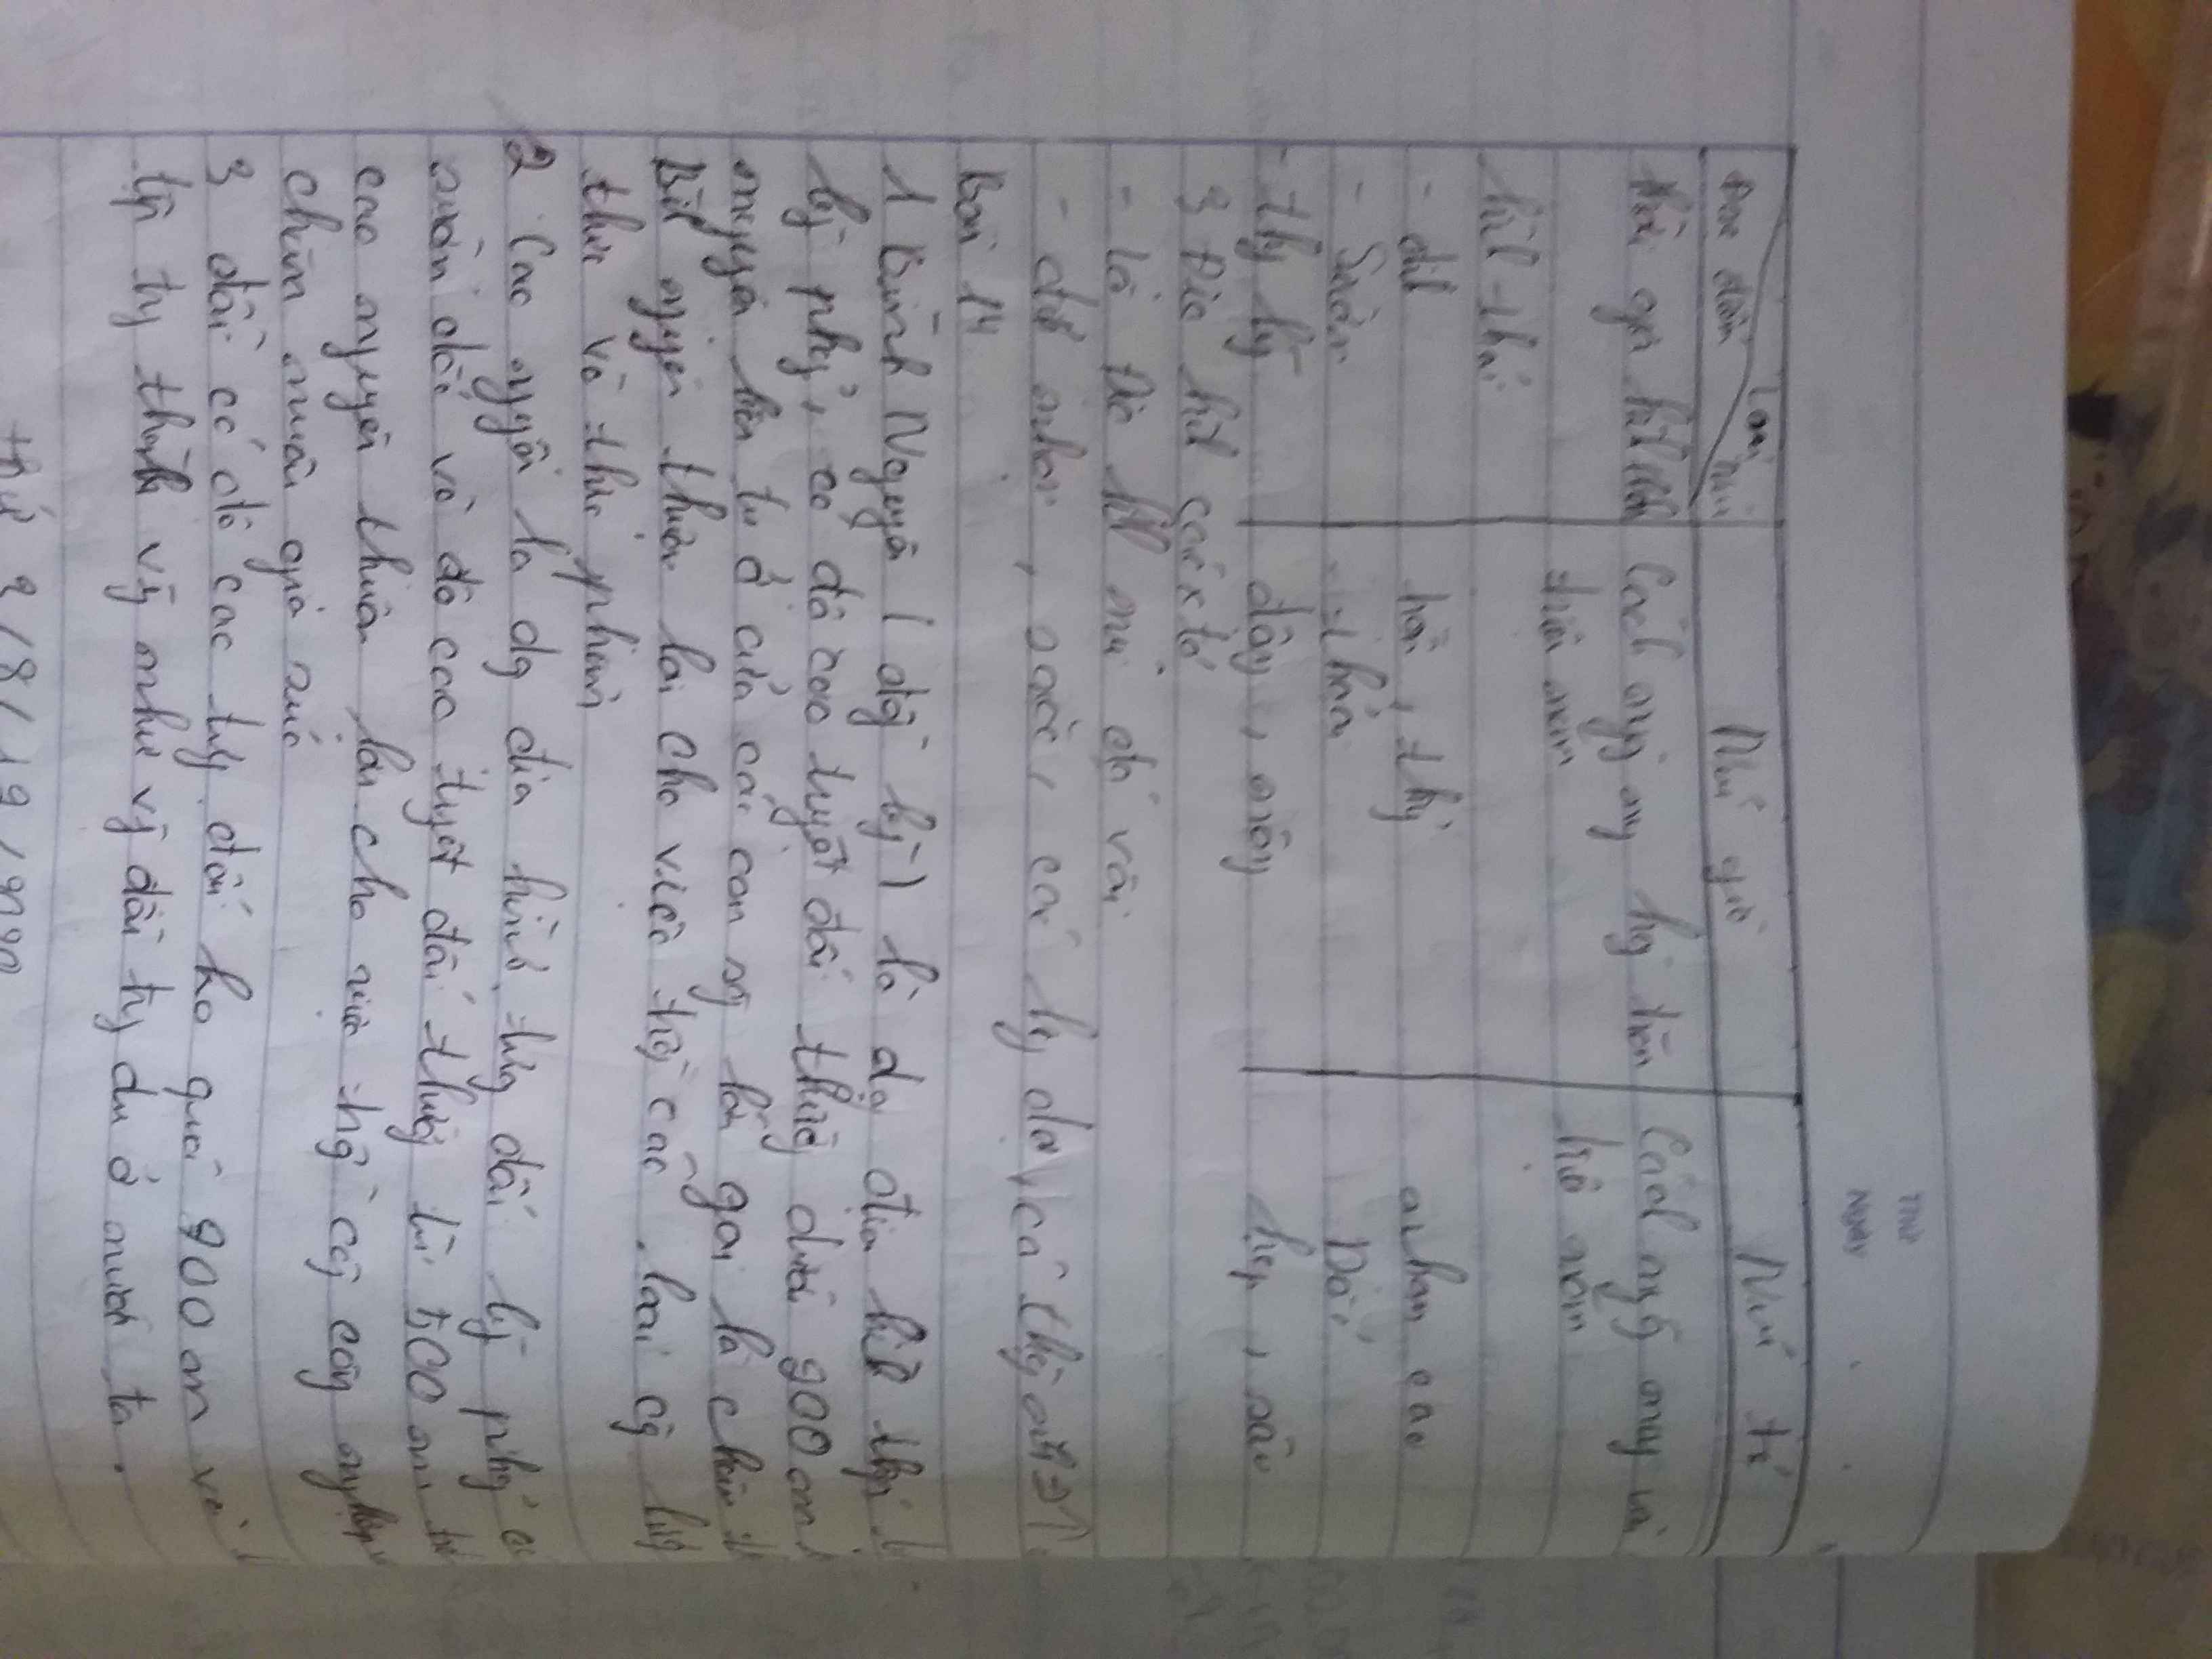 THỨ
NGÀY
Đặc điểm Loại núi Núi già Núi trẻ
thời gian hình thành Cách ngày nay hàng trăm Cách ngày nay vài
triệu năm triệu năm
hình thái
- đỉnh nhọn cao
- Sườn thoải Dốc
- thung lũng rộng, nông hẹp, sâu
3 Địa hình caxtơ
- là núi đá vôi
- đỉnh nhọn, sắc, có
Bài 14
1 Bình Nguyên (đồng bằng) là dạng địa hình thấp
bằng phẳng, có độ cao tuyệt đối thường dưới 200 m
nguyên bồi tụ ở cửa các con sông lớn gọi là châu
Bình nguyên thuận lợi cho việc trồng các loại cây
thực và thực phẩm
2 Cao nguyên là dạng địa hình tương đối bằng phẳng
sườn dốc và độ cao tuyệt đối thường từ 500 m
cao nguyên thuận lợi cho việc trồng cây công nghiệp
chăn nuôi gia súc
3 đồi có độ cao tuyệt đối không quá 200 m
tập trung thành vùng như vùng đồi trung du ở nước ta.